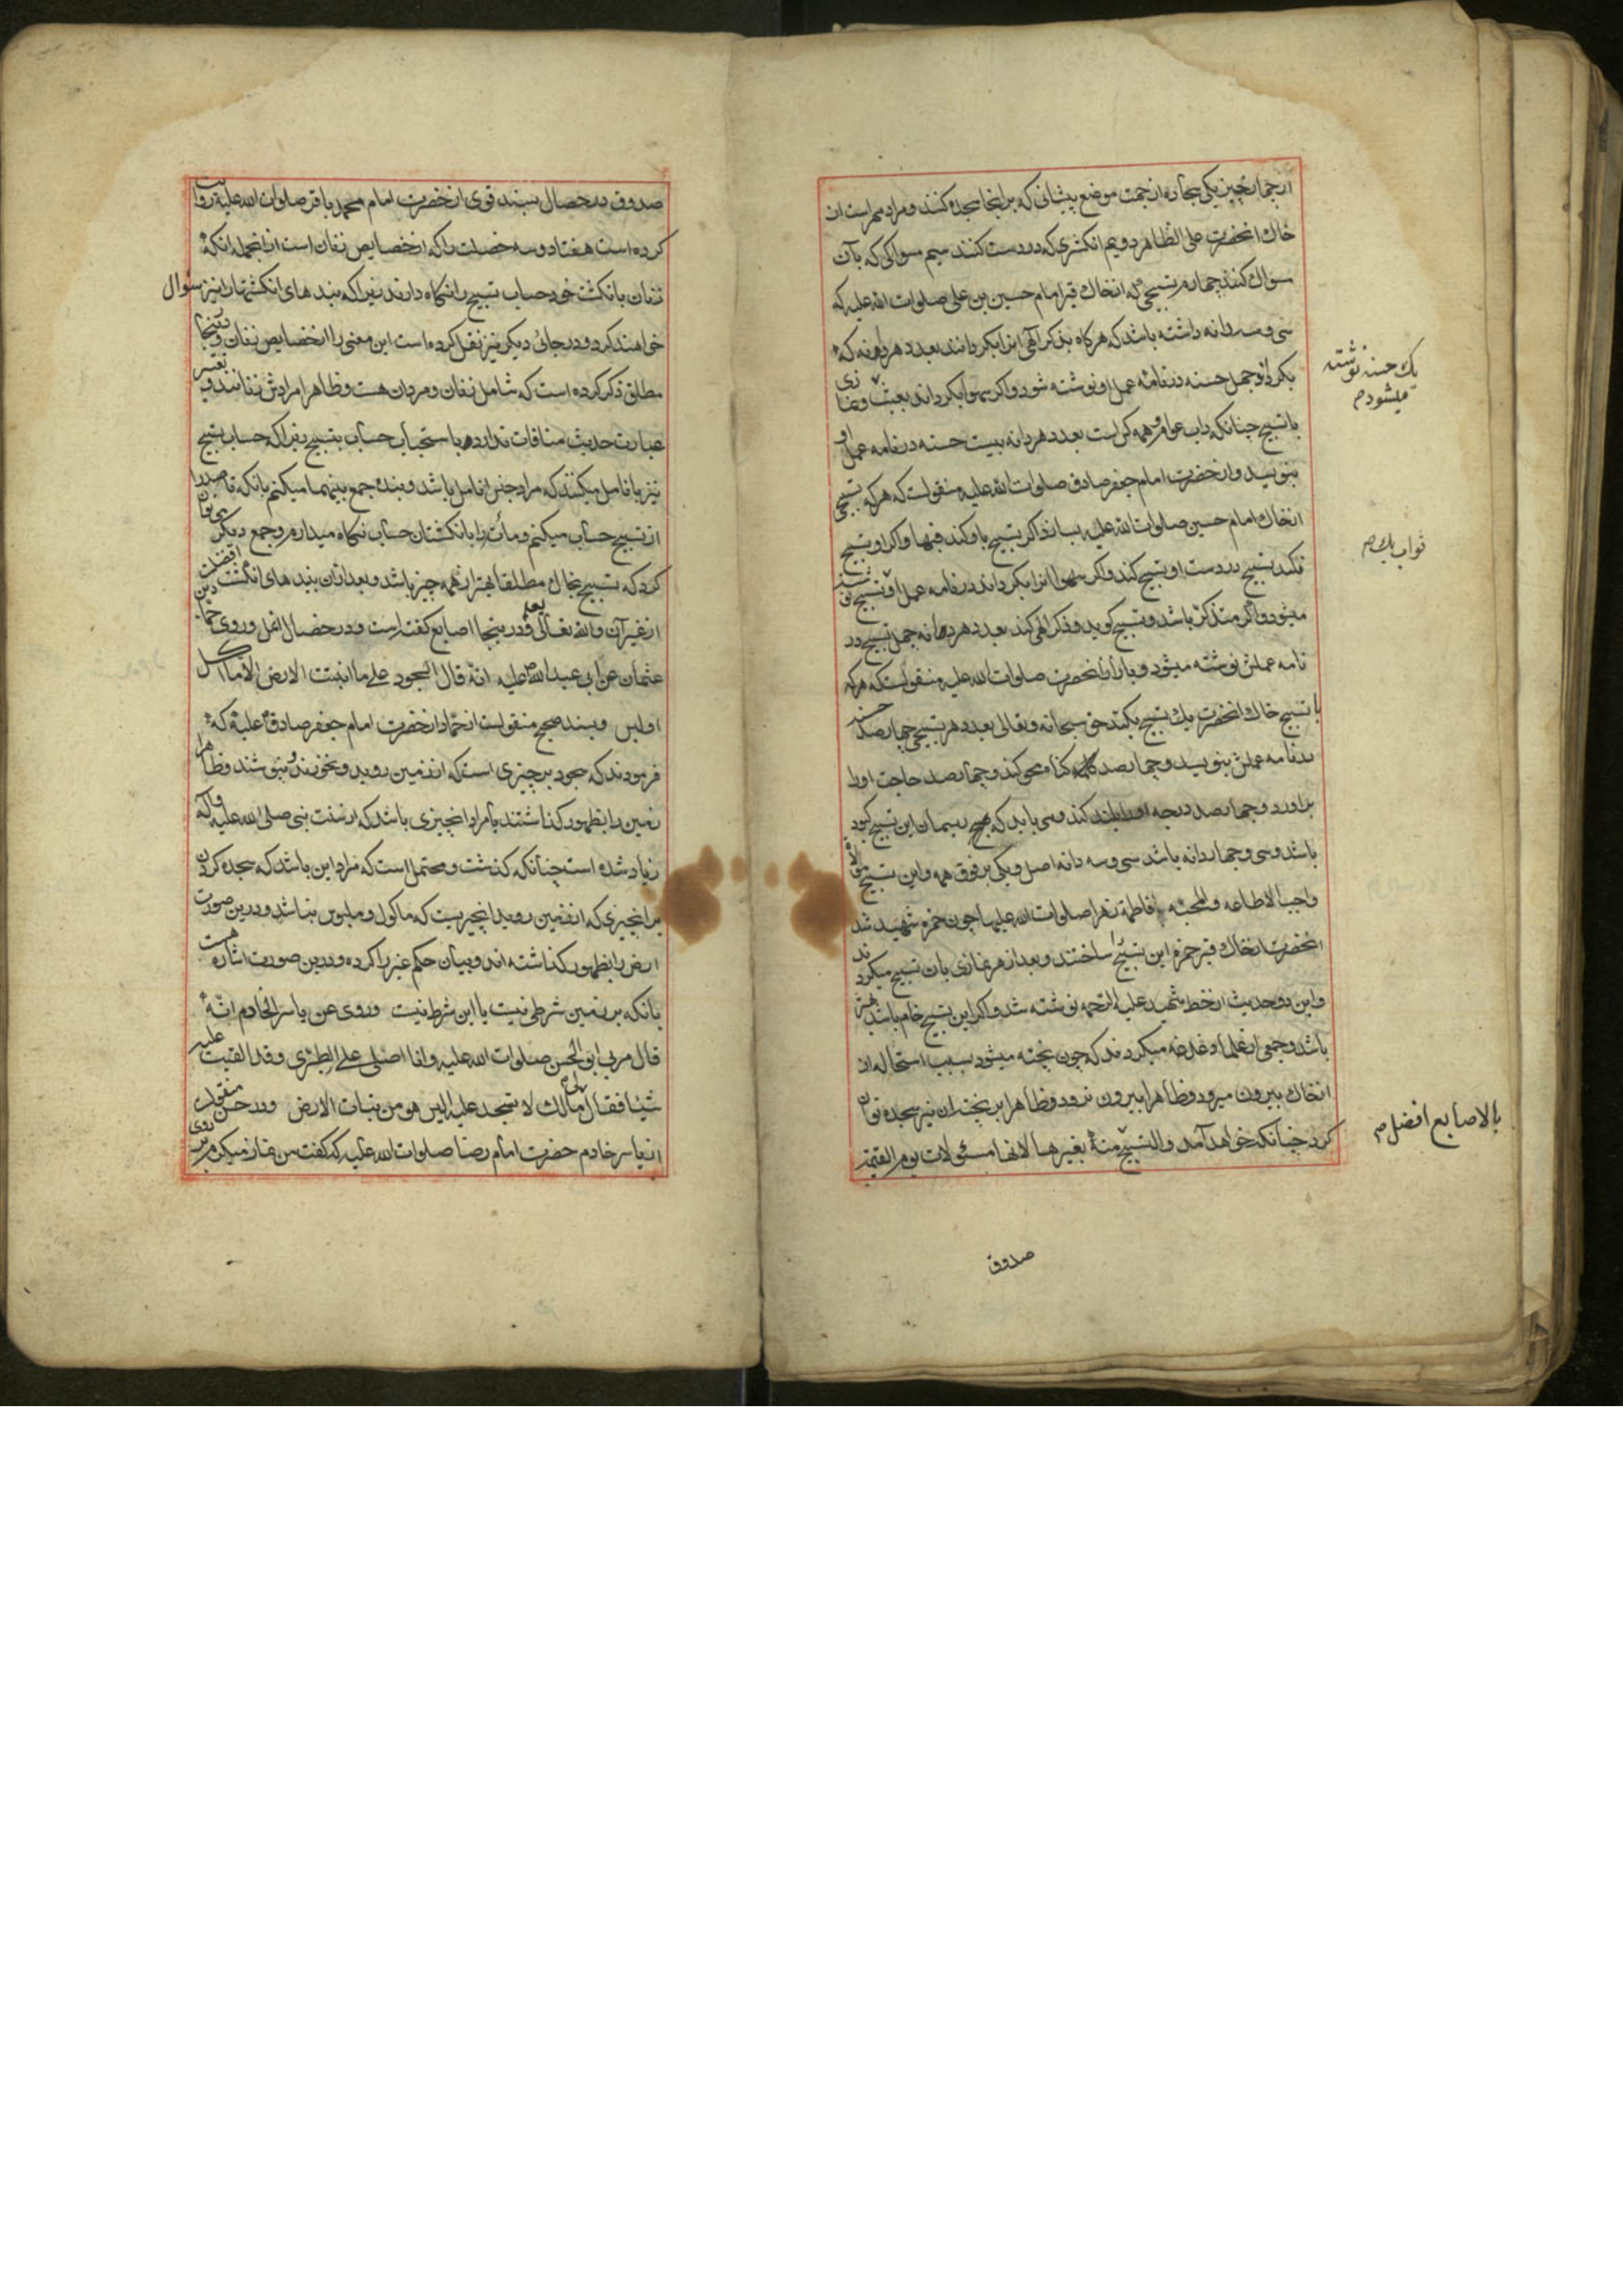 از چهار چیز یکی سجاده از جهت موضع پیشانی که بر اینجا سجده کنند و مراد مهر است از
خاك انحضرت علی الظاهر دویم انکشتری که در دست کنند سیم مسواکی که بآن
سواك کنند چهارم تسبیحی که از خاك قبر امام حسین بن علی صلوات الله علیه که
سی و سه دانه داشته باشد که هرکاه بذکر الهی انرا بکردانند بعدد هر دانه که
بکرداند چهل حسنه در نامهٔ عمل او نوشته شود و اکر سهوا بکرداند بعبث
یك حسنه نوشته میشود م
با تسبیح چنانکه داب عوام و همه کس است بعدد هر دانه بیست حسنه در نامه عمل او
بنویسد و از حضرت امام جعفر صادق صلوات الله علیه منقولست که هر که تسبیحی
از خاك امام حسین صلوات الله علیه بسازد اکر تسبیح باو کند فبها و اکر او تسبیح
نکند تسبیح در دست او تسبیح کند و اکر سهوا انرا بکرداند در نامه عمل او
ثواب یك م
میشود و اکر متذکر باشد و تسبیح کوید و ذکر الهی کند بعدد هر دانه چهل تسبیح در
نامه عملش نوشته میشود و باز از انحضرت صلوات الله علیه منقولست که هر که
با تسبیح خاك انحضرت یك تسبیح بکند حق سبحانه و تعالی بعدد هر تسبیحی چهارصد حسنه
در نامه عملش بنویسد و چهارصد کناه محو کند و چهارصد حاجت اورا
براورد و چهارصد درجه اورا بلند کند و می باید که ریسمان این تسبیح کبود
باشد و سی و چهار دانه باشد سی و سه دانه اصل و یکی بر فوق همه و این تسبیح
واجب الاطاعه والمحبه فاطمهٔ زهرا صلوات الله علیها چون حمزه شهید شد
انحضرت از خاك قبر حمزه این تسبیح ساختند و بعد از هر نمازی بان تسبیح میکردند
و این دو حدیث از خط شهید علیه الرحمه نوشته شد و اکر این تسبیح خام باشد بهتر
باشد و جمعی از علما دغدغه میکردند که چون پخته میشود بسبب استحاله از
از خاك بیرون میرود و ظاهرا بیرون نرود و ظاهرا بر پختهٔ ان نیز سجده توان
کرد چنانکه خواهد آمد والتسبیح منهٔ بغیرها لانها مسئولات یوم القیمة
بالاصابع افضل م
صدوق
صدوق در خصال بسند قوی از حضرت امام محمد باقر صلوات الله علیه روایت
کرده است هفتاد و سه خصلت را که از خصایص زنان است از انجمله انکه
زنان بانکشت خود حساب تسبیح را نکاه دارند زیرا که بندهای انکشتهارا نیز سؤال
خواهند کرد و در جائی دیکر نیز نقل کرده است این معنی را از خصایص زنان و اینجا
مطلق ذکر کرده است که شامل زنان و مردان هست و ظاهرا مرادش زنانند و تغییر
عبارت حدیث منافات ندارد با استحباب حساب تسبیح زیرا که حساب تسبیح
نیز بانامل میکنند که مراد جنس انامل باشد و بنده جمع بینهما میکنم بانکه تا صد را
از تسبیح حساب میکنم و مآت را بانکشتان حساب نکاه میدارم و جمع دیکر می توان
کرد که تسبیح خاك مطلقا بهتر از همه چیز باشد و بعد از ان بندهای انکشت افضلست
از غیر آن والله تعالی یعلم و در اینجا اصابع کفته است و در خصال انمل وروی حماد بن
عثمان عن ابی عبد الله علیه انه قال السجود علی ما انبتت الارض الا ما اکل
اولبس و بسند صحیح منقولست از حماد از حضرت امام جعفر صادق علیه که
فرمودند که سجود بر چیزی است که از زمین روید و نخورند و نپوشند و ظاهرا
زمین را بظهور کذاشتند یا مراد انچیزی باشد که از سنت نبی صلی الله علیه وآله
زیاد شده است چنانکه کذشت و محتمل است که مراد این باشد که سجده کردن
بر انچیزی که از زمین روید انچیزیست که ماکول و ملبوس نباشد و درین صورت
ارض را بظهور کذاشته اند و بیان حکم غیر را کرده و درین صورت اشاره هست
بانکه بر زمین شرطی نیست یا این شرط نیست وروی عن یاسر الخادم انه
قال مر بی ابو الحسن صلوات الله علیه وانا اصلی علی الطبری وقد القیت علیه
شیئا فقال لی مالك لا تسجد علیه الیس هو من نبات الارض و در حسن منقولست
از یاسر خادم حضرت امام رضا صلوات الله علیه که کفت من نماز میکردم بر روی